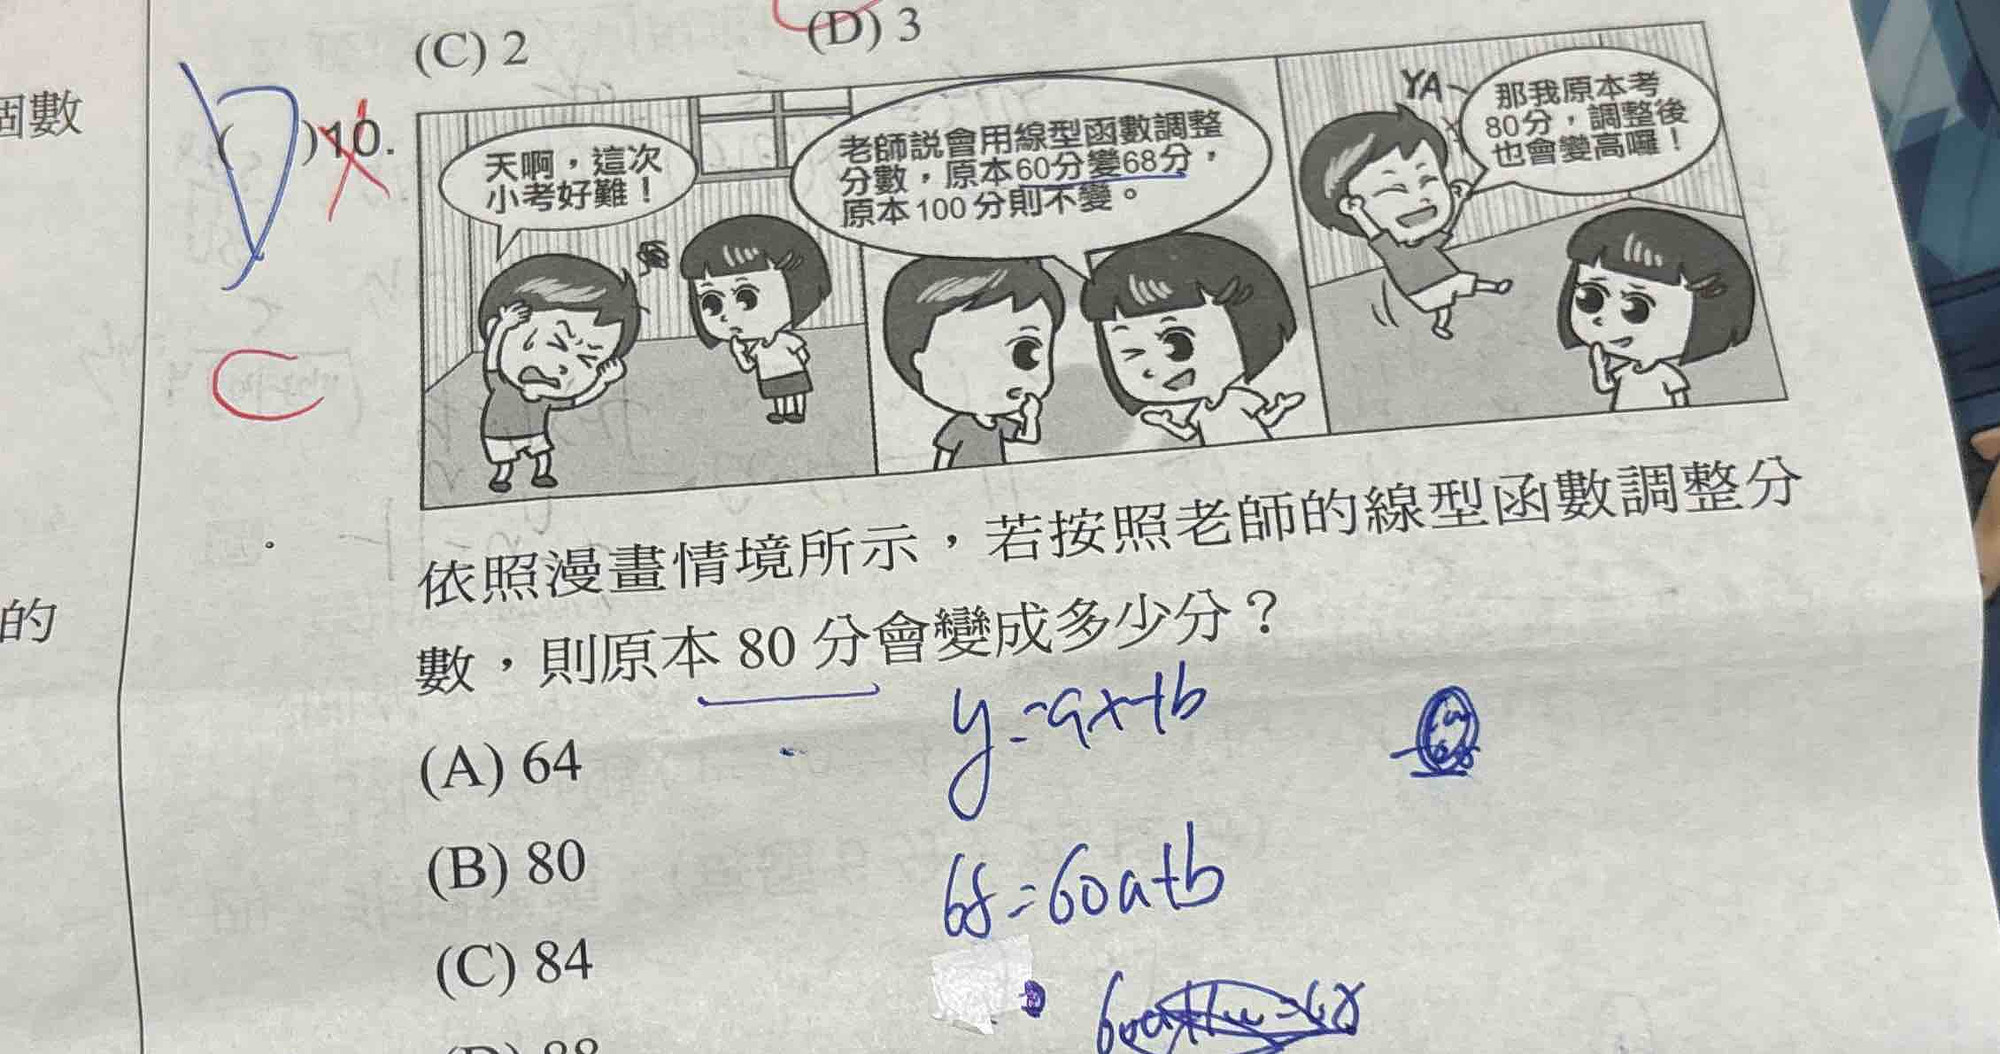 (C) 2
(D) 3
個數
的
D
( )10.
C
天啊，這次
小考好難！
老師說會用線型函數調整
分數，原本60分變68分，
原本100分則不變。
YA~
那我原本考
80分，調整後
也會變高囉！
依照漫畫情境所示，若按照老師的線型函數調整分
數，則原本 80 分會變成多少分？
(A) 64
(B) 80
(C) 84
y=ax+b
68=60a+b